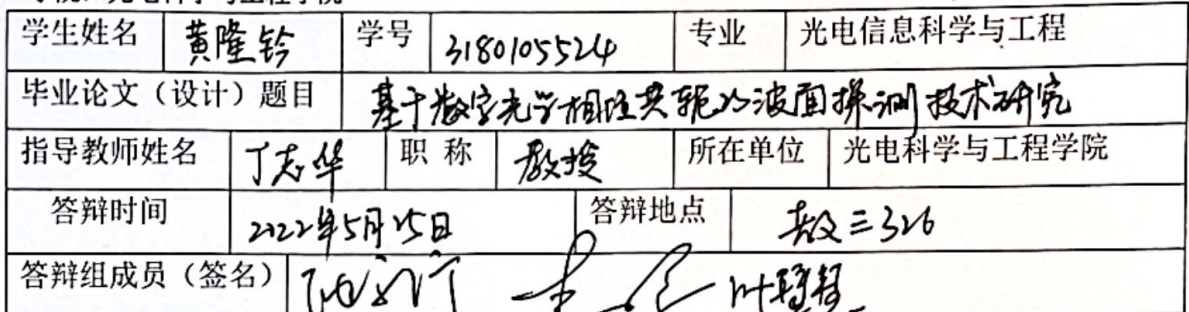 学生姓名 黄隆钤 学号 3180105524 专业 光电信息科学与工程
毕业论文（设计）题目 基于数字光学相位共轭的波面探测技术研究
指导教师姓名 丁志华 职 称 教授 所在单位 光电科学与工程学院
答辩时间 2022年5月25日 答辩地点 教三326
答辩组成员（签名）